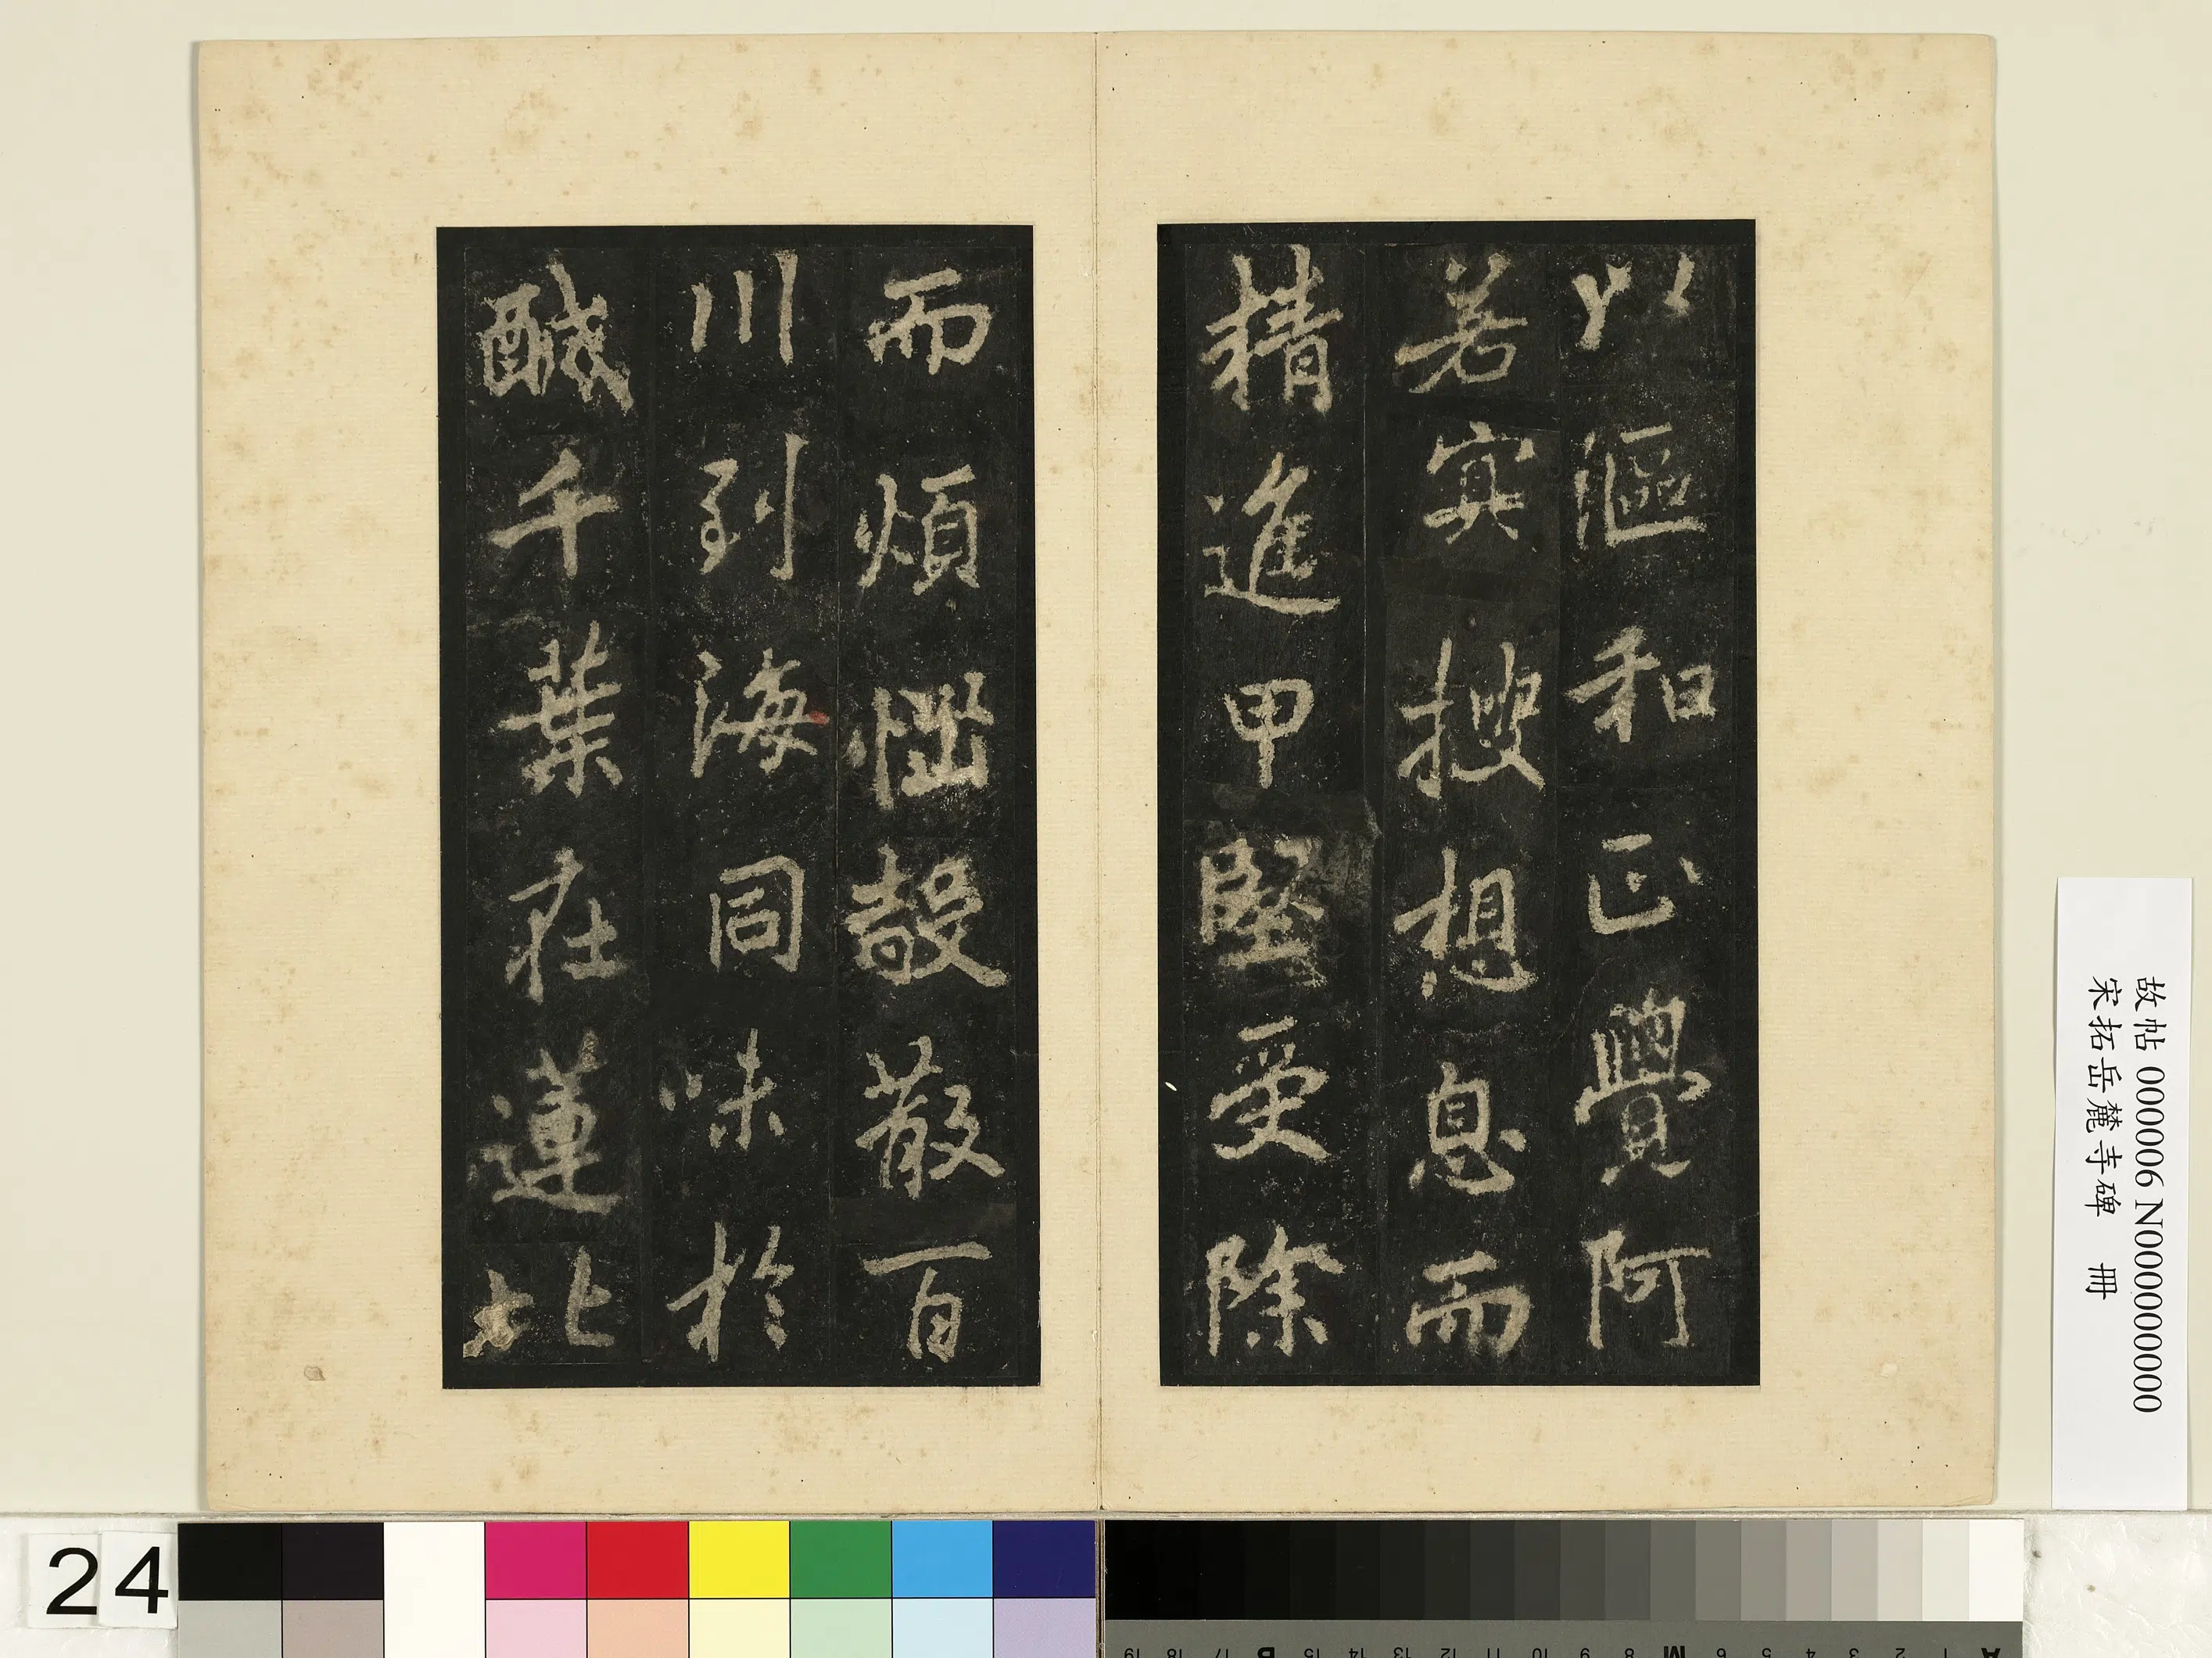 以漚和正覺阿
若冥搜想息而
精進甲堅受除
而煩惱殼散百
川到海同味於
醎千葉在蓮比
故帖 000006 N000000000
宋拓岳麓寺碑 冊
24